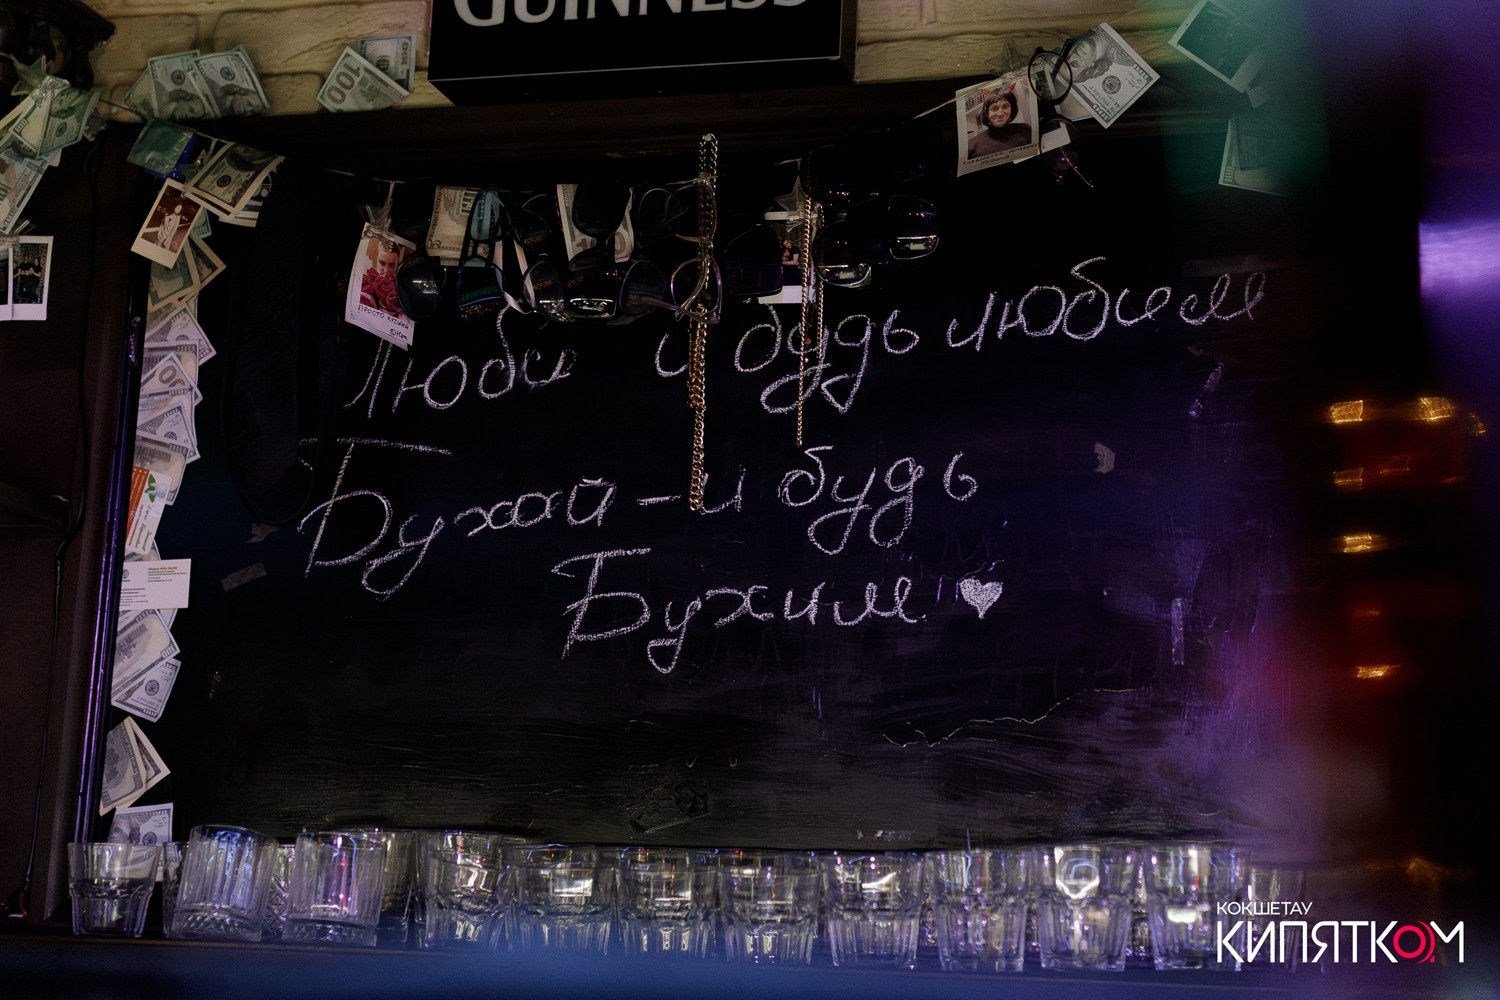 GUINNESS
ПРОСТО КУШАЙ
Люби и будь любим
Бухай - и будь
Бухим
КОКШЕТАУ
КИПЯТКОМ